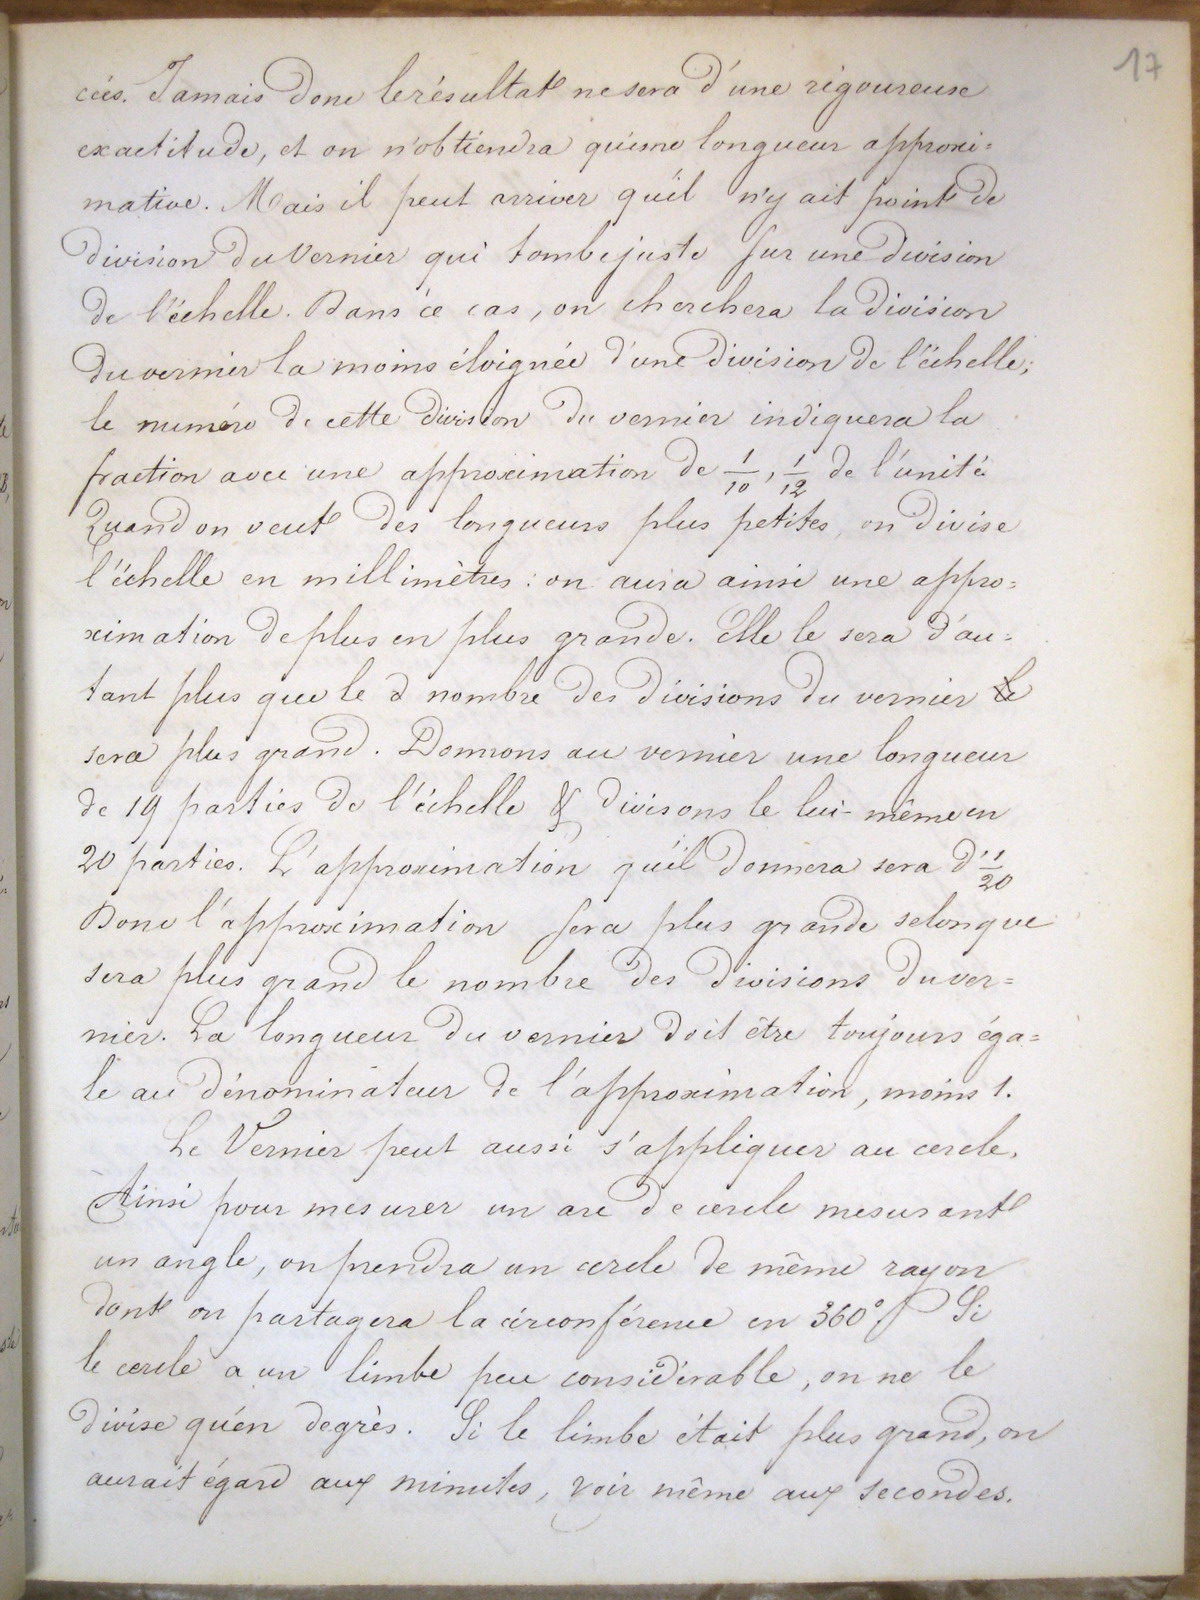 17
cées. Jamais donc le résultat ne sera d'une rigoureuse
exactitude, et on n'obtiendra qu'une longueur approxi=
mative. Mais il peut arriver qu'il n'y ait point de
division du Vernier qui tombe juste sur une division
de l'échelle. Dans ce cas, on cherchera la division
du vernier la moins éloignée d'une division de l'échelle;
le numéro de cette division du vernier indiquera la
fraction avec une approximation de 1/10, 1/12 de l'unité
Quand on veut des longueurs plus petites, on divise
l'échelle en millimètres: on aura ainsi une appro=
ximation de plus en plus grande. Elle le sera d'au=
tant plus que le d nombre des divisions du vernier le
sera plus grand. Donnons au vernier une longueur
de 19 parties de l'échelle & divisons le lui-même en
20 parties. L'approximation qu'il donnera sera d'1/20
Donc l'approximation sera plus grande selon que
sera plus grand le nombre des divisions du ver=
nier. La longueur du vernier doit être toujours éga=
le au dénominateur de l'approximation, moins 1.
Le Vernier peut aussi s'appliquer au cercle.
Ainsi pour mesurer un arc de cercle mesurant
un angle, on prendra un cercle de même rayon
dont on partagera la circonférence en 360° Si
le cercle a un limbe peu considérable, on ne le
divise qu'en degrès. Si le limbe était plus grand, on
aurait égard aux minutes, voir même aux secondes.